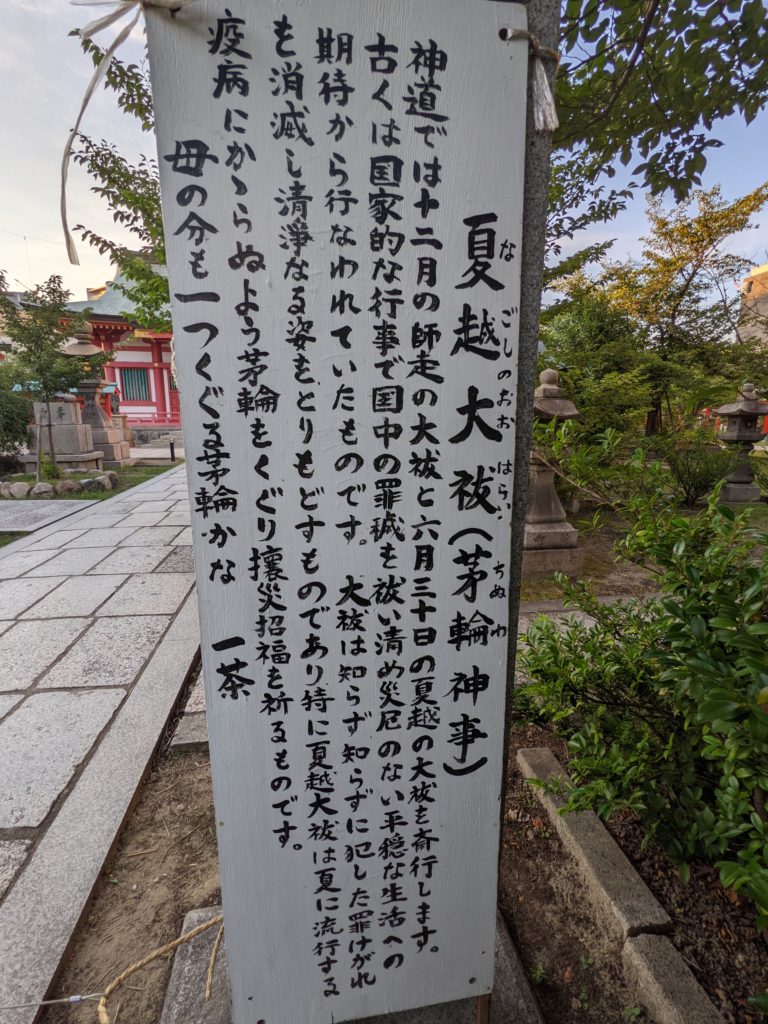 夏越大祓(茅輪神事)
なごしのおおはらい
ちぬわ
神道では十二月の師走の大祓と六月三十日の夏越の大祓を斎行します。
古くは国家的な行事で国中の罪穢を祓い清め災厄のない平穏な生活への
期待から行なわれていたものです。大祓は知らず知らずに犯した罪けがれ
も消滅し清浄なる姿をとりもどすものであり特に夏越大祓は夏に流行する
疫病にかゝらぬよう茅輪をくぐり攘災招福を祈るものです。
母の分も一つくぐる茅輪かな 一茶